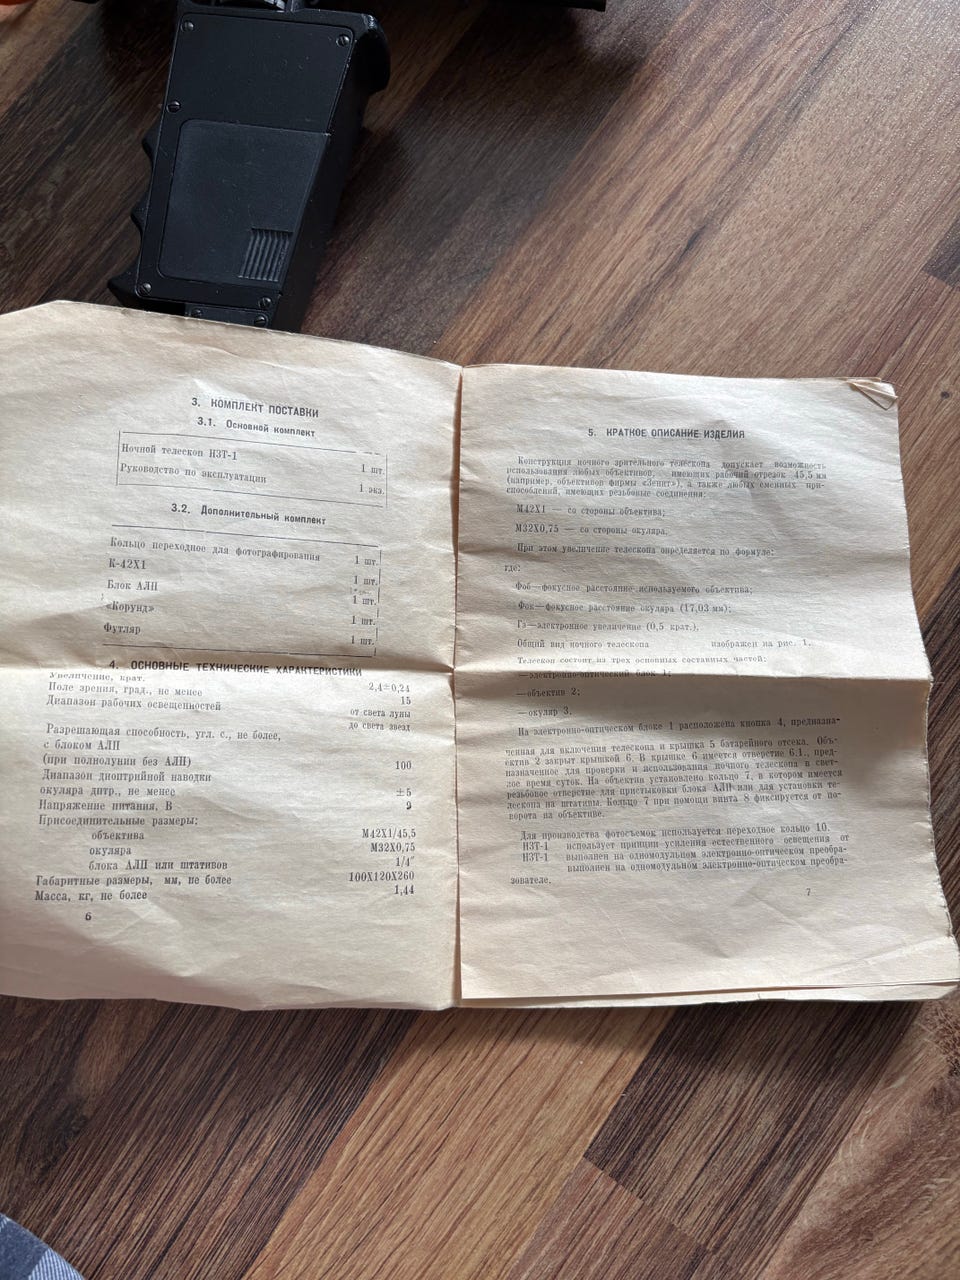 3. КОМПЛЕКТ ПОСТАВКИ
3.1. Основной комплект
Ночной телескоп НЗТ-1 1 шт.
Руководство по эксплуатации 1 экз.
3.2. Дополнительный комплект
Кольцо переходное для фотографирования 1 шт.
К-42Х1
Блок АЛП 1 шт.
«Корунд» 1 шт.
1 шт.
Футляр 1 шт.
4. ОСНОВНЫЕ ТЕХНИЧЕСКИЕ ХАРАКТЕРИСТИКИ
Увеличение, крат. 2,4±0,24
Поле зрения, град., не менее 15
Диапазон рабочих освещенностей от света луны
до света звезд
Разрешающая способность, угл. с., не более,
с блоком АЛП
(при полнолунии без АЛП) 100
Диапазон диоптрийной наводки
окуляра дптр., не менее ±5
Напряжение питания, В 9
Присоединительные размеры:
объектива М42Х1/45,5
окуляра М32Х0,75
блока АЛП или штативов 1/4″
Габаритные размеры, мм, не более 100Х120Х260
Масса, кг, не более 1,44
6
5. КРАТКОЕ ОПИСАНИЕ ИЗДЕЛИЯ
Конструкция ночного зрительного телескопа допускает возможность
использования любых объективов, имеющих рабочий отрезок 45,5 мм
(например, объективов фирмы «Зенит»), а также любых сменных при-
способлений, имеющих резьбовые соединения:
М42Х1 — со стороны объектива;
М32Х0,75 — со стороны окуляра.
При этом увеличение телескопа определяется по формуле:
где:
Фоб—фокусное расстояние используемого объектива;
Фок—фокусное расстояние окуляра (17,03 мм);
Гэ—электронное увеличение (0,5 крат.).
Общий вид ночного телескопа изображен на рис. 1.
Телескоп состоит из трех основных составных частей:
—электронно-оптический блок 1;
—объектив 2;
—окуляр 3.
На электронно-оптическом блоке 1 расположена кнопка 4, предназна-
ченная для включения телескопа и крышка 5 батарейного отсека. Объ-
ектив 2 закрыт крышкой 6. В крышке 6 имеется отверстие 6.1., пред-
назначенное для проверки и использования ночного телескопа в свет-
лое время суток. На объективе установлено кольцо 7, в котором имеется
резьбовое отверстие для пристыковки блока АЛП или для установки те-
лескопа на штативы. Кольцо 7 при помощи винта 8 фиксируется от по-
ворота на объективе.
Для производства фотосъемок используется переходное кольцо 10.
НЗТ-1 использует принципы усиления естественного освещения от
НЗТ-1 выполнен на одномодульном электронно-оптическом преобра-
выполнен на одномодульном электронно-оптическом преобра-
зователе.
7